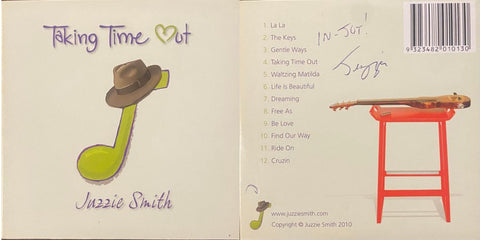 Taking Time Out
Juzzie Smith
1. La La
2. The Keys
3. Gentle Ways
4. Taking Time Out
5. Waltzing Matilda
6. Life is Beautiful
7. Dreaming
8. Free As
9. Be Love
10. Find Our Way
11. Ride On
12. Cruzin
IN-JOY!
Juzzie
9 323482 010130
www.juzziesmith.com
Copyright © Juzzie Smith 2010